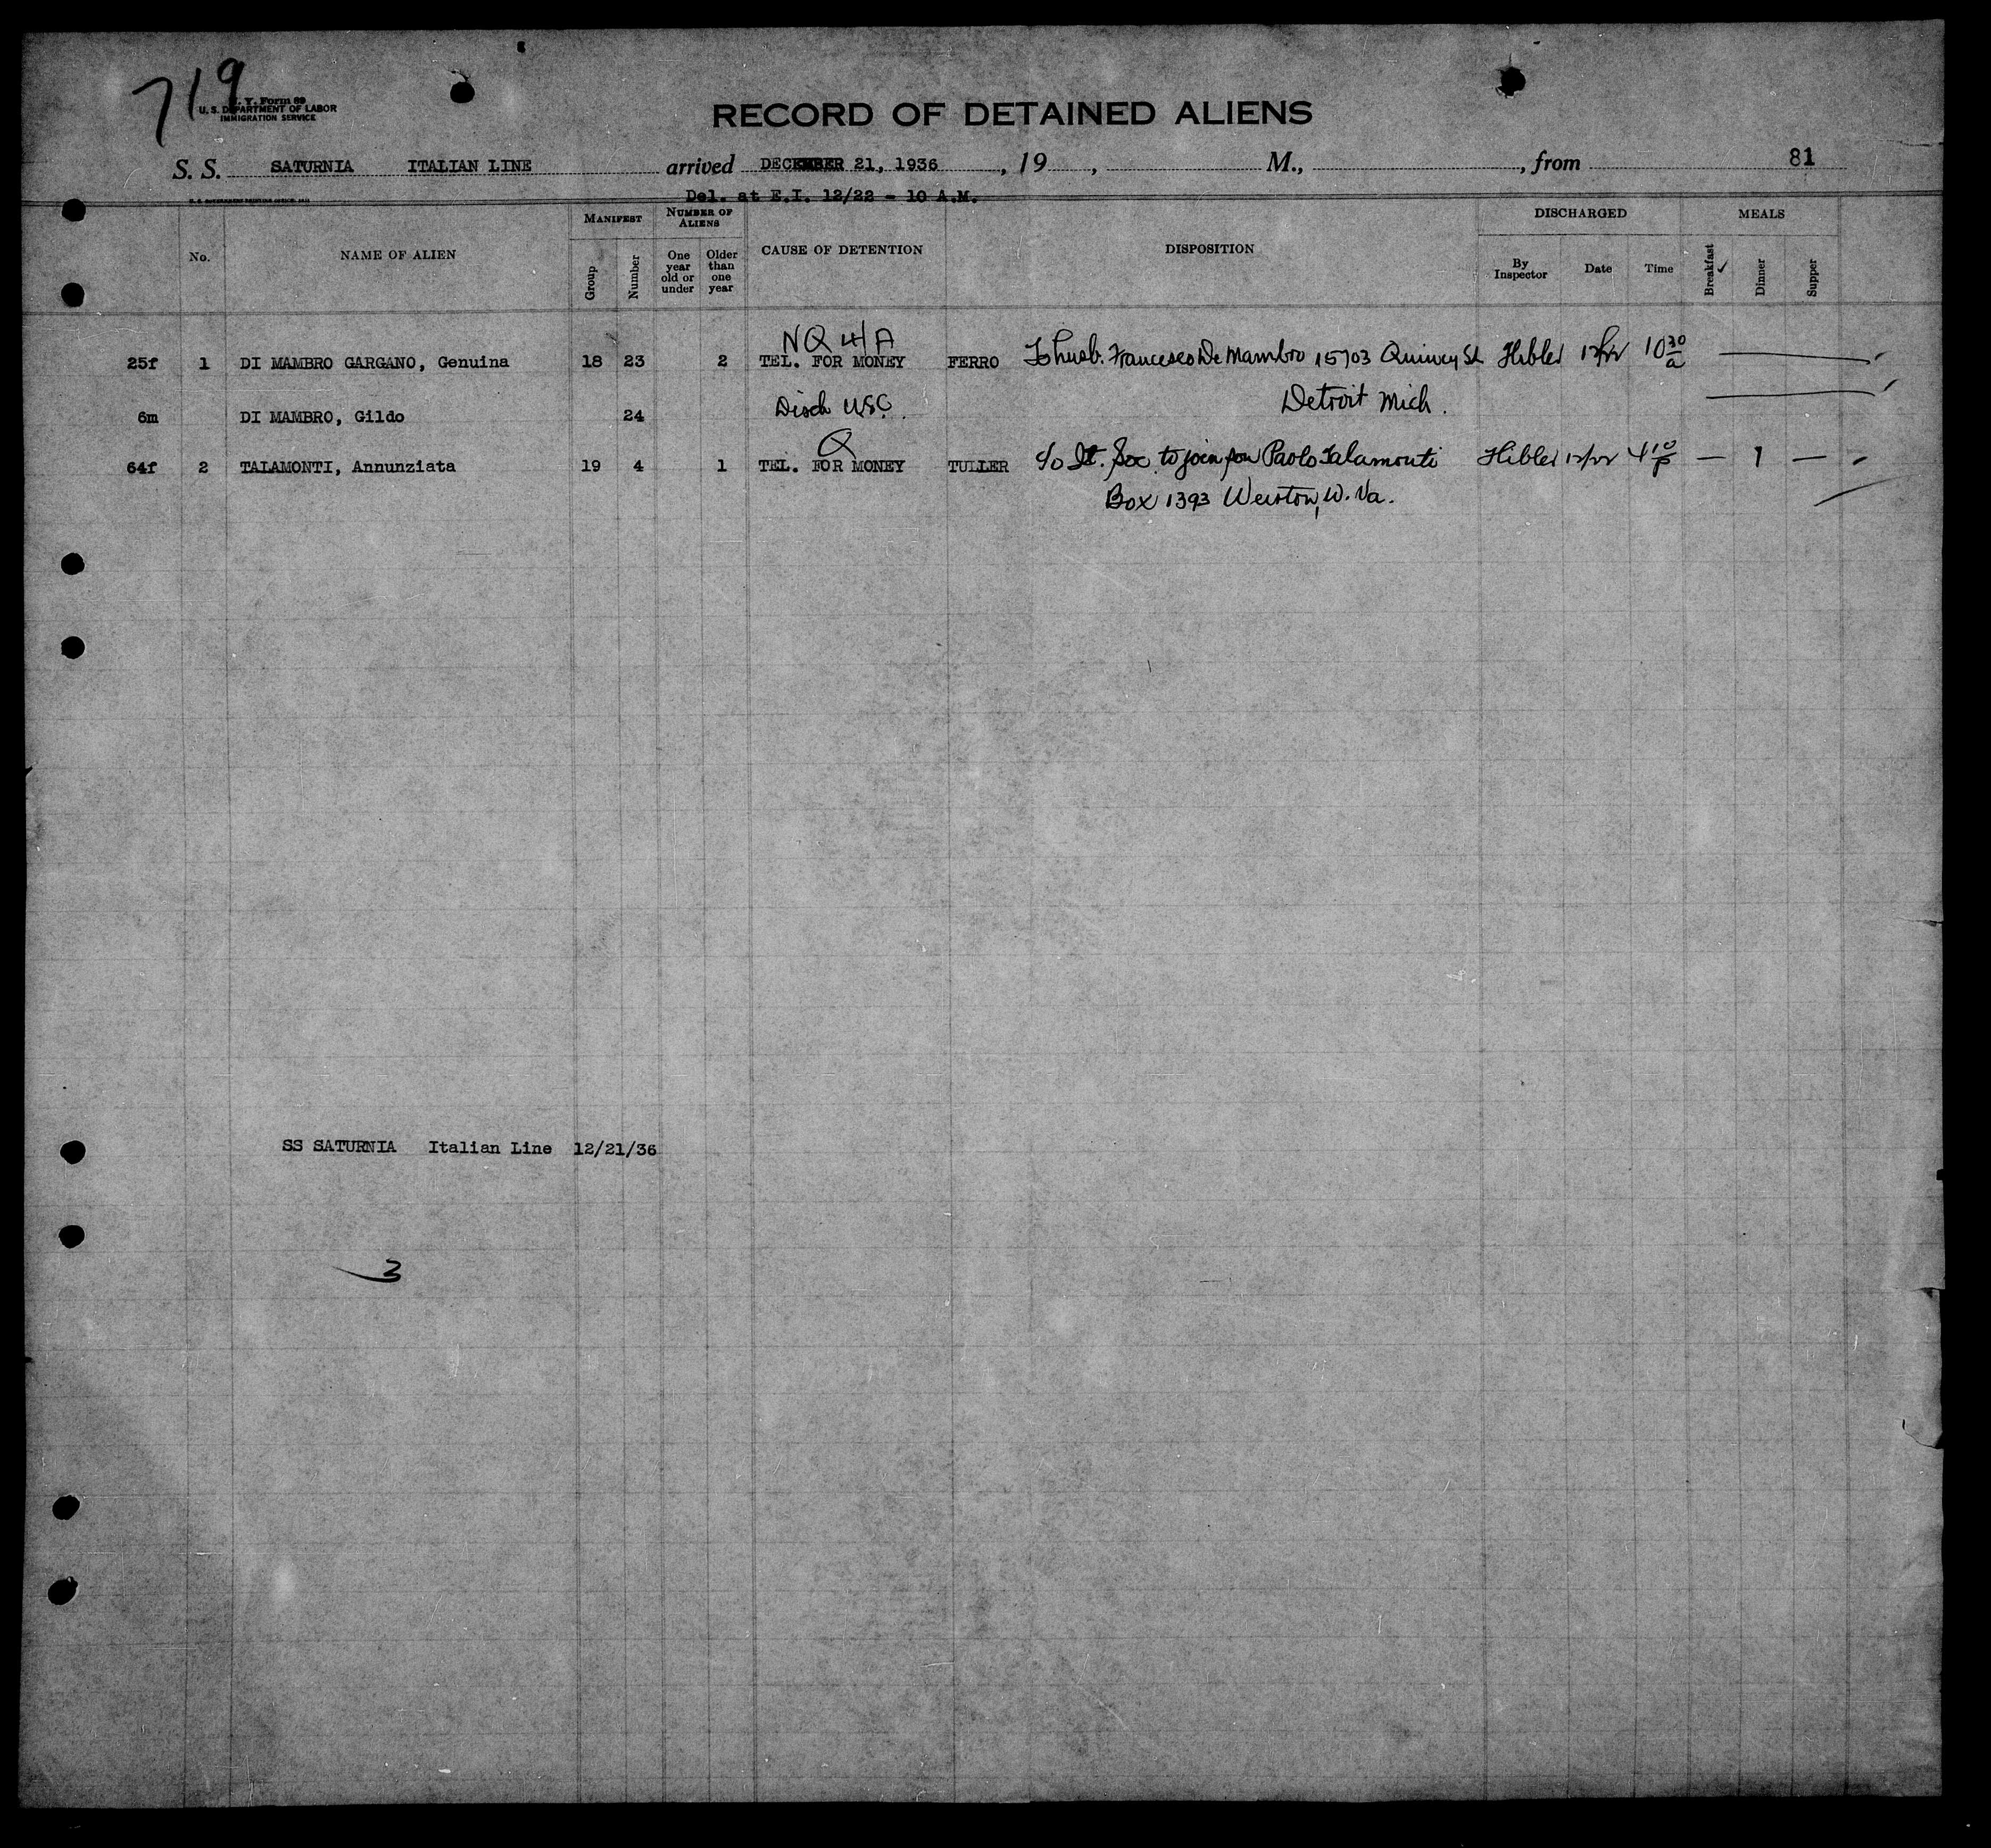 719
N. Y. Form 89
U. S. DEPARTMENT OF LABOR
IMMIGRATION SERVICE
RECORD OF DETAINED ALIENS
S. S. SATURNIA ITALIAN LINE arrived DECEMBER 21, 1936, 19 , M., , from 81
Del. at E.I. 12/22 - 10 A.M.
No. NAME OF ALIEN MANIFEST Group Number NUMBER OF ALIENS One year old or under Older than one year CAUSE OF DETENTION DISPOSITION DISCHARGED By Inspector Date Time MEALS Breakfast Dinner Supper
NQ 4/A
25f 1 DI MAMBRO GARGANO, Genuina 18 23 2 TEL. FOR MONEY FERRO To husb. Francesco De Mambro 15703 Quincy St Hibler 12/22 10 30/a
Disch USC. Detroit Mich.
6m DI MAMBRO, Gildo 24
Q
64f 2 TALAMONTI, Annunziata 19 4 1 TEL. FOR MONEY TULLER c/o It. Soc. to join son Paolo Talamonti Hibler 12/22 4 10/p — 1 —
Box 1393 Weirton, W. Va.
SS SATURNIA Italian Line 12/21/36
3